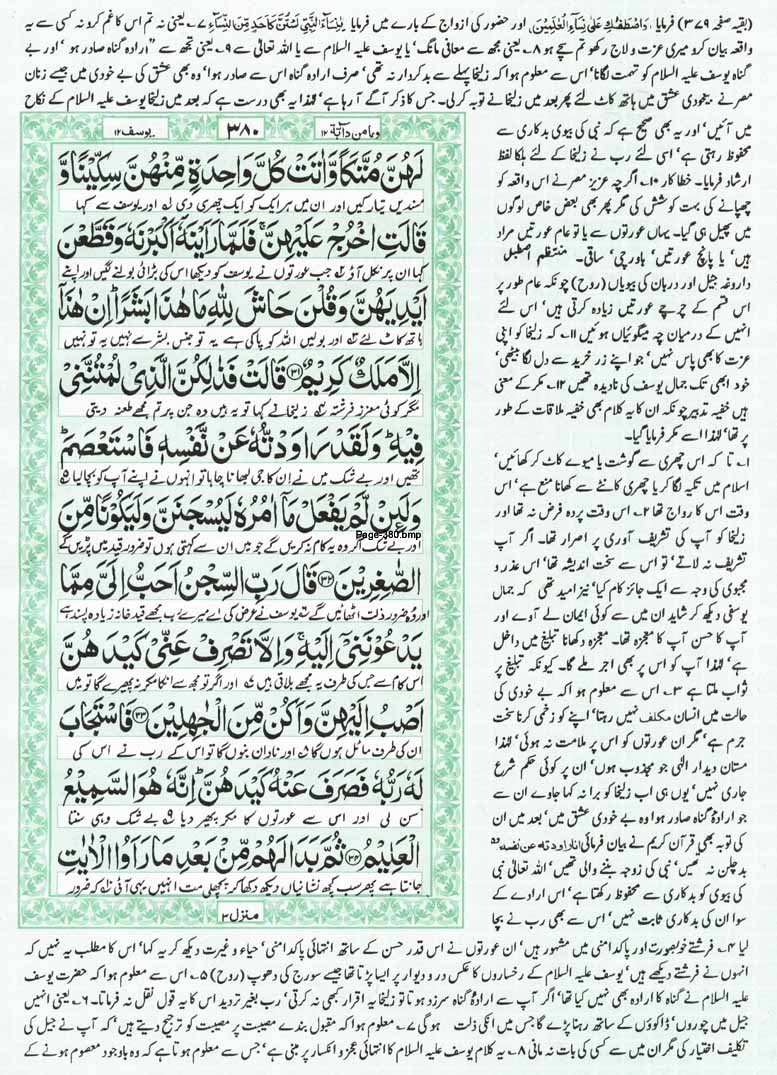 (بقیہ صفحہ ۳۷۹) فرمایا وَاصْطَفٰكِ عَلٰى نِسَآءِ الْعٰلَمِيْنَ اور حضور کی ازواج کے بارے میں فرمایا يٰنِسَآءَ النَّبِيِّ لَسْتُنَّ كَاَحَدٍ مِّنَ النِّسَآءِ ۷؎ یعنی نہ تم اس کا غم کرو نہ کسی سے یہ
واقعہ بیان کرو میری عزت و لاج رکھو تم سچے ہو ۸؎ یعنی مجھ سے معافی مانگ' یا یوسف علیہ السلام سے یا اللہ تعالیٰ سے ۹؎ یعنی تجھ سے ارادہ گناہ صادر ہوا اور بے
گناہ یوسف علیہ السلام کو تہمت لگانا' اس سے معلوم ہوا کہ زلیخا پہلے سے بدکردار نہ تھی' صرف ارادہ گناہ اس سے صادر ہوا' وہ بھی عشق کی بے خودی میں جیسے زنان
مصر نے بیخودی عشق میں ہاتھ کاٹ لئے پھر بعد میں زلیخا نے توبہ کر لی۔ جس کا ذکر آگے آ رہا ہے' لہٰذا یہ بھی درست ہے کہ بعد میں زلیخا یوسف علیہ السلام کے نکاح
میں آئیں' اور یہ بھی صحیح ہے کہ نبی کی بیوی بدکاری سے
محفوظ رہتی ہے' اسی لئے رب نے زلیخا کے لئے ہلکا لفظ
ارشاد فرمایا۔ خطا کار ۱۰؎ اگرچہ عزیز مصر نے اس واقعہ کو
چھپانے کی بہت کوشش کی مگر پھر بھی بعض خاص لوگوں
میں پھیل ہی گیا۔ یہاں عورتوں سے یا تو عام عورتیں مراد
ہیں' یا پانچ عورتیں' باورچی' ساقی۔ منتظم اصطبل
داروغہ جیل اور دربان کی بیویاں (روح) چونکہ عام طور پر
اس قسم کے چرچے عورتیں زیادہ کرتی ہیں' اس لئے
انہیں کے درمیان چہ میگوئیاں ہوئیں ۱۱؎ کہ زلیخا کو اپنی
عزت کا بھی پاس نہیں' جو اپنے زر خرید سے دل لگا بیٹھی'
خود ابھی تک جمال یوسف کی نادیدہ تھیں ۱۲؎ مکر کے معنی
ہیں خفیہ تدبیر چونکہ ان کا یہ کلام بھی خفیہ ملاقات کے طور
پر تھا' لہٰذا اسے مکر فرمایا گیا۔
۱؎ تا کہ اس چھری سے گوشت یا میوے کاٹ کر کھائیں'
اسلام میں تکیہ لگا کر یا چھری کانٹے سے کھانا منع ہے' اس
وقت اس کا رواج تھا ۲؎ اس وقت پردہ فرض نہ تھا اور
زلیخا کو آپ کی تشریف آوری پر اصرار تھا۔ اگر آپ
تشریف نہ لاتے' تو اس سے سخت اندیشہ تھا' اس عذر و
مجبوری کی وجہ سے ایک جائز کام کیا' نیز امید تھی کہ جمال
یوسفی دیکھ کر شاید ان میں سے کوئی ایمان لے آوے اور
آپ کا حسن آپ کا معجزہ تھا۔ معجزہ دکھانا تبلیغ میں داخل
ہے' لہٰذا آپ کو اس پر بھی اجر ملے گا۔ کیونکہ تبلیغ پر
ثواب ملتا ہے ۳؎ اس سے معلوم ہوا کہ بے خودی کی
حالت میں انسان مکلف نہیں رہتا' اپنے کو زخمی کرنا سخت
جرم ہے' مگر ان عورتوں کو اس پر ملامت نہ ہوئی' لہٰذا
مستان دیدار الٰہی جو مجذوب ہوں' ان پر کوئی حکم شرع
جاری نہیں' یوں ہی اب زلیخا کو برا نہ کہا جاوے ان سے
جو ارادۂ گناہ صادر ہوا وہ بے خودی عشق میں' بعد میں ان
کی توبہ بھی قرآن کریم نے بیان فرمائی انا راودته عن نفسه
بدچلن نہ تھیں' نبی کی زوجہ بننے والی تھیں' اللہ تعالیٰ نبی
کی بیوی کو بدکاری سے محفوظ رکھتا ہے' اس ارادے کے
سوا ان کی بدکاری ثابت نہیں' اس سے بھی رب نے بچا
وما من دآبة ۱۲
۳۸۰
یوسف ۱۲
لَهُنَّ مُتَّكَاً وَّاٰتَتْ كُلَّ وَاحِدَةٍ مِّنْهُنَّ سِكِّيْنًا وَّ
مسندیں تیار کیں اور ان میں ہر ایک کو ایک چھری دی ۱؎ اور یوسف سے کہا
قَالَتِ اخْرُجْ عَلَيْهِنَّ ۚ فَلَمَّا رَاَيْنَهٗۤ اَكْبَرْنَهٗ وَقَطَّعْنَ
کہا ان پر نکل آؤ ۲؎ جب عورتوں نے یوسف کو دیکھا اس کی بڑائی بولنے لگیں اور اپنے
اَيْدِيَهُنَّ وَقُلْنَ حَاشَ لِلّٰهِ مَا هٰذَا بَشَرًا ؕ اِنْ هٰذَاۤ
ہاتھ کاٹ لئے ۳؎ اور بولیں اللہ کو پاکی ہے یہ تو جنس بشر سے نہیں یہ تو نہیں
اِلَّا مَلَكٌ كَرِيْمٌ ۝۳۱ قَالَتْ فَذٰلِكُنَّ الَّذِيْ لُمْتُنَّنِيْ
مگر کوئی معزز فرشتہ ۴؎ زلیخا نے کہا تو یہ ہیں وہ جن پر تم مجھے طعنہ دیتی
فِيْهِ ؕ وَلَقَدْ رَاوَدْتُّهٗ عَنْ نَّفْسِهٖ فَاسْتَعْصَمَ ؕ
تھیں اور بے شک میں نے ان کا جی لبھانا چاہا تو انہوں نے اپنے آپ کو بچالیا ۵؎
وَلَئِنْ لَّمْ يَفْعَلْ مَاۤ اٰمُرُهٗ لَيُسْجَنَنَّ وَلَيَكُوْنًا مِّنَ
Page-380.bmp
اور بے شک اگر وہ یہ کام نہ کریں گے جو میں ان سے کہتی ہوں تو ضرور قید میں پڑیں گے
الصّٰغِرِيْنَ ۝۳۲ قَالَ رَبِّ السِّجْنُ اَحَبُّ اِلَيَّ مِمَّا
اور وہ ضرور ذلت اٹھائیں گے ۶؎ یوسف نے عرض کی اے میرے رب مجھے قید خانہ زیادہ پسند ہے
يَدْعُوْنَنِيْۤ اِلَيْهِ ۚ وَاِلَّا تَصْرِفْ عَنِّيْ كَيْدَهُنَّ
اس کام سے جس کی طرف یہ مجھے بلاتی ہیں ۷؎ اور اگر تو مجھ سے انکا مکر نہ پھیرے گا تو میں
اَصْبُ اِلَيْهِنَّ وَاَكُنْ مِّنَ الْجٰهِلِيْنَ ۝۳۳ فَاسْتَجَابَ
ان کی طرف مائل ہوں گا ۸؎ اور نادان بنوں گا تو اس کے رب نے اس کی
لَهٗ رَبُّهٗ فَصَرَفَ عَنْهُ كَيْدَهُنَّ ؕ اِنَّهٗ هُوَ السَّمِيْعُ
سن لی اور اس سے عورتوں کا مکر پھیر دیا ۹؎ بے شک وہی سنتا
الْعَلِيْمُ ۝۳۴ ثُمَّ بَدَا لَهُمْ مِّنْۢ بَعْدِ مَا رَاَوُا الْاٰيٰتِ
جانتا ہے پھر سب کچھ نشانیاں دیکھ دکھا کر پچھلی مت انہیں یہی آئی ۱۰؎ کہ ضرور
منزل ۳
لیا ۴؎ فرشتے خوبصورت اور پاکدامنی میں مشہور ہیں' ان عورتوں نے اس قدر حسن کے ساتھ انتہائی پاکدامنی' حیاء و غیرت دیکھ کر یہ کہا' اس کا مطلب یہ نہیں کہ
انہوں نے فرشتے دیکھے ہیں' یوسف علیہ السلام کے رخساروں کا عکس در و دیوار پر ایسا پڑتا تھا جیسے سورج کی دھوپ (روح) ۵؎ اس سے معلوم ہوا کہ حضرت یوسف
علیہ السلام نے گناہ کا ارادہ بھی نہیں کیا تھا' اگر آپ سے ارادۂ گناہ سرزد ہوتا تو زلیخا یہ اقرار کبھی نہ کرتی' رب بغیر تردید اس کا یہ قول نقل نہ فرماتا۔ ۶؎ یعنی انہیں
جیل میں چوروں' ڈاکوؤں کے ساتھ رہنا پڑے گا جس میں انکی ذلت ہوگی ۷؎ معلوم ہوا کہ مقبول بندے مصیبت پر مصیبت کو ترجیح دیتے ہیں' کہ آپ نے جیل کی
تکلیف اختیار کی مگر ان میں سے کسی کی بات نہ مانی ۸؎ یہ کلام یوسف علیہ السلام کا انتہائی عجز و انکسار پر مبنی ہے' جس سے معلوم ہوتا ہے کہ وہ باوجود معصوم ہونے کے